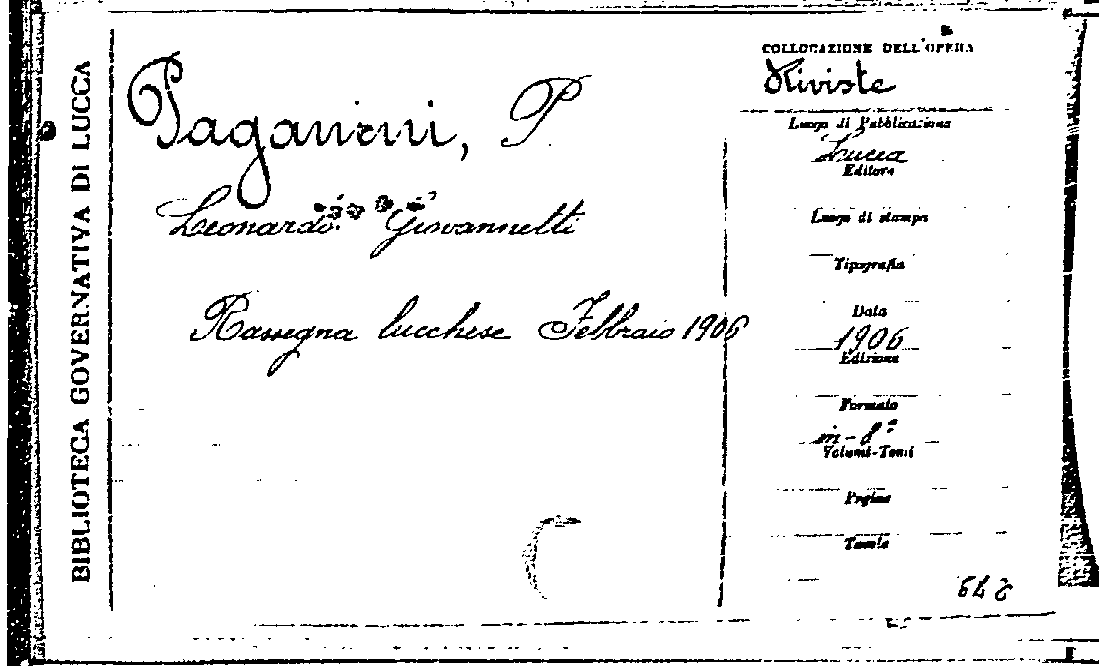 BIBLIOTECA GOVERNATIVA DI LUCCA
Paganini, P.
Leonardo Giovannetti
Rassegna lucchese Febbraio 1906
COLLOCAZIONE DELL'OPERA
Riviste
Luogo di Pubblicazione
Lucca
Editore
Luogo di stampa
Tipografia
Data
1906
Edizione
Formato
in-8º
Volumi-Tomi
Pagine
Tavole